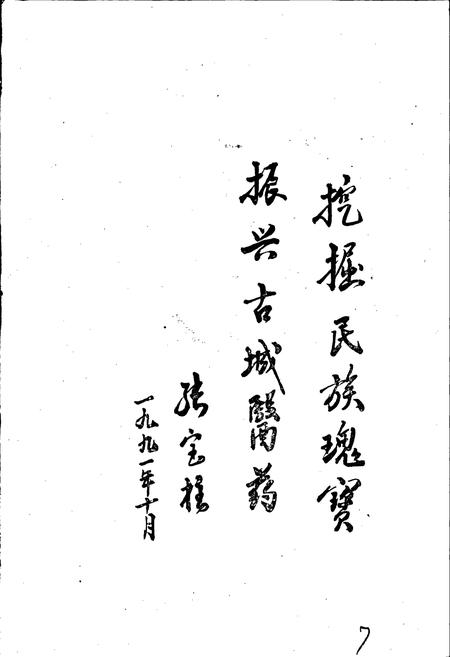 挖掘民族瑰寶
振兴古城醫药
张宝柱
一九九一年十月
7